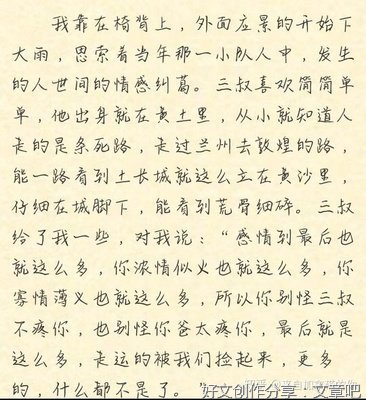 我靠在椅背上，外面应景的开始下
大雨，思索着当年那一小队人中，发生
的人世间的情感纠葛。三叔喜欢简简单
单，他出身就在黄土里，从小就知道人
走的是条死路，走过兰州去敦煌的路，
能一路看到土长城就这么立在黄沙里，
仔细在城脚下，能看到荒骨细碎。三叔
给了我一些，对我说：“感情到最后也
就这么多，你浓情似火也就这么多，你
寡情薄义也就这么多，所以你别怪三叔
不疼你，也别怪你爸太疼你，最后就是
这么多，走运的被我们捡起来，更多
的，什么都不是了。”
好文创作分享：文章吧